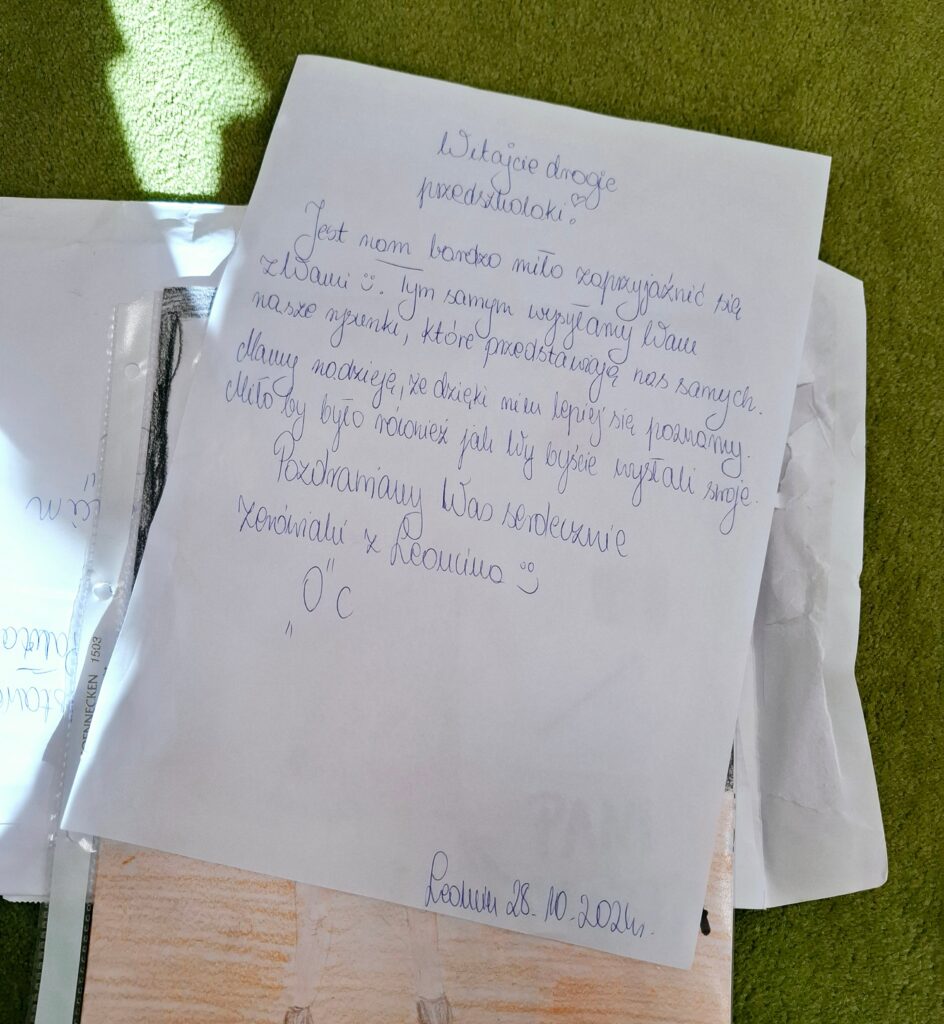 Witajcie drogie
przedszkolaki!
Jest nam bardzo miło zaprzyjaźnić się
z Wami. Tym samym wysyłamy Wam
nasze rysunki, które przedstawiają nas samych.
Mamy nadzieję, że dzięki nim lepiej się poznamy.
Miło by było również jak Wy byście wysłali swoje.
Pozdrawiamy Was serdecznie
z Leoncina
"O"c
Leoncin 28.10.2024r.
SOENNECKEN 1503